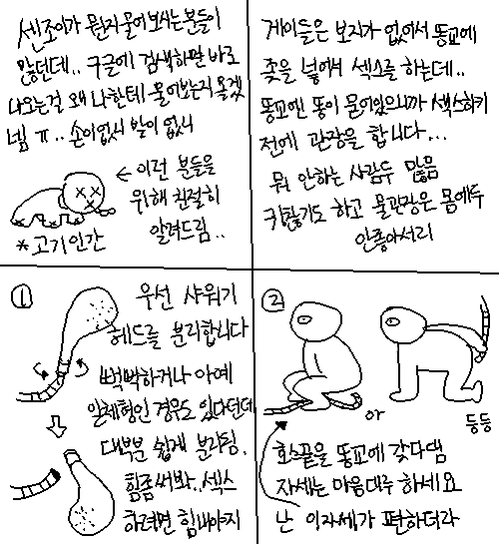 센조이가 뭔지 물어보시는분들이
많던데.. 구글에 검색하면 바로
나오는걸 왜 나한테 물어보는지 몰겠
넹 ㅠ.. 손이없시 발이 없시
← 이런 분들을
위해 친절히
알려드림..
*고기인간
게이들은 보지가 없어서 똥꼬에
좆을 넣어서 섹스를 하는데..
똥꼬엔 똥이 묻어있으니까 섹스하기
전에 관장을 합니다...
뭐 안하는 사람두 많음
귀찮기도 하고 물관장은 몸에두
안좋아서리
①
우선 샤워기
헤드를 분리합니다
뻑뻑하거나 아예
일체형인 경우도 있다던데
대부분 쉽게 분리됨.
힘좀써봐..섹스
하려면 힘내야지
②
or
등등
호스끝을 똥꼬에 갖다댐
자세는 마음대루 하세요
난 이자세가 편하더라